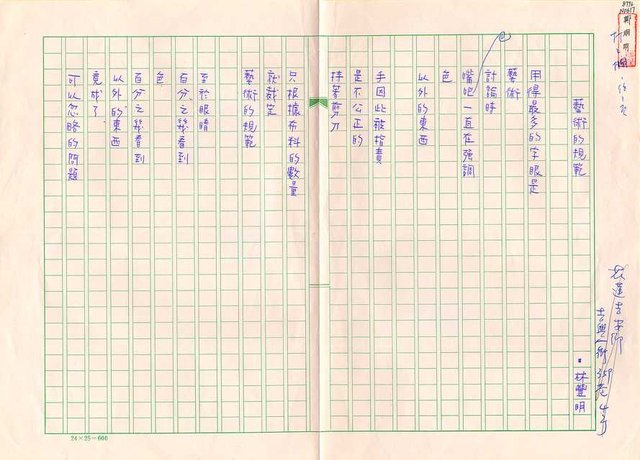 藝術的規範
林豐明
用得最多的字眼是
藝術
討論時
嘴吧一直在強調
色
以外的東西
手因此被指責
是不公正的
持著剪刀
只根據布料的數量
就裁定
藝術的規範
至於眼睛
百分之幾看到
色
百分之幾看到
以外的東西
竟成了
可以忽略的問題
花蓮吉安鄉
吉興一街359巷4号
鄭烱明
24×25=600